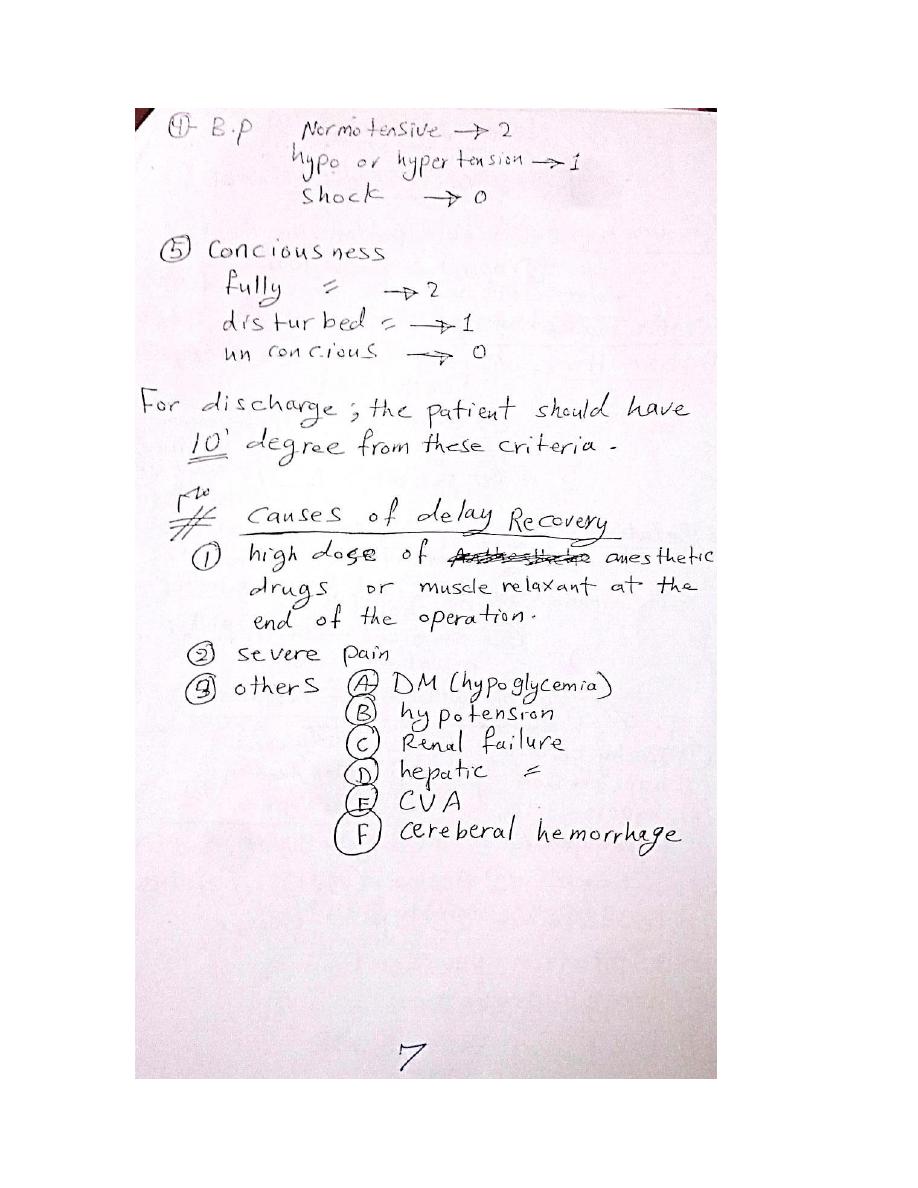 ④- B.P Normotensive → 2
hypo or hypertension → 1
Shock → 0
⑤ Conciousness
fully = → 2
disturbed = → 1
un concious → 0
For discharge ; the patient should have
10' degree from these criteria -
# Causes of delay Recovery
① high dose of anesthetic
drugs or muscle relaxant at the
end of the operation.
② severe pain
③ others Ⓐ DM (hypoglycemia)
Ⓑ hypotension
Ⓒ Renal failure
Ⓓ hepatic =
Ⓔ CVA
Ⓕ cereberal hemorrhage
7